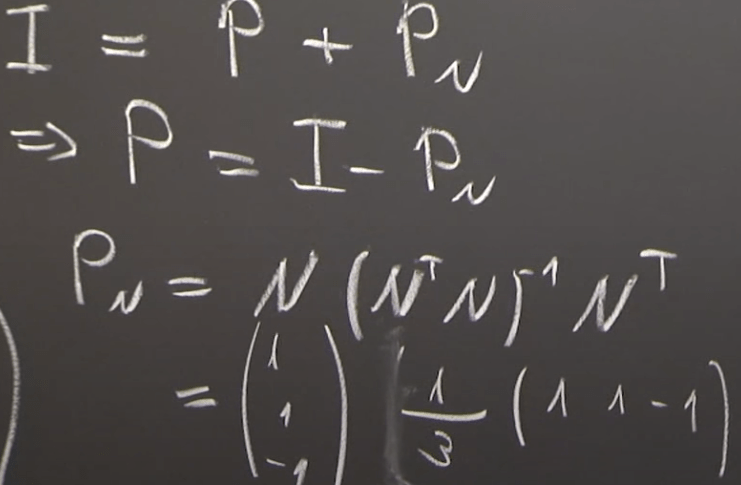 I = P + P_N
⇒ P = I - P_N
P_N = N (N^T N)^-1 N^T
= (1 1 -1) 1/3 (1 1 -1)